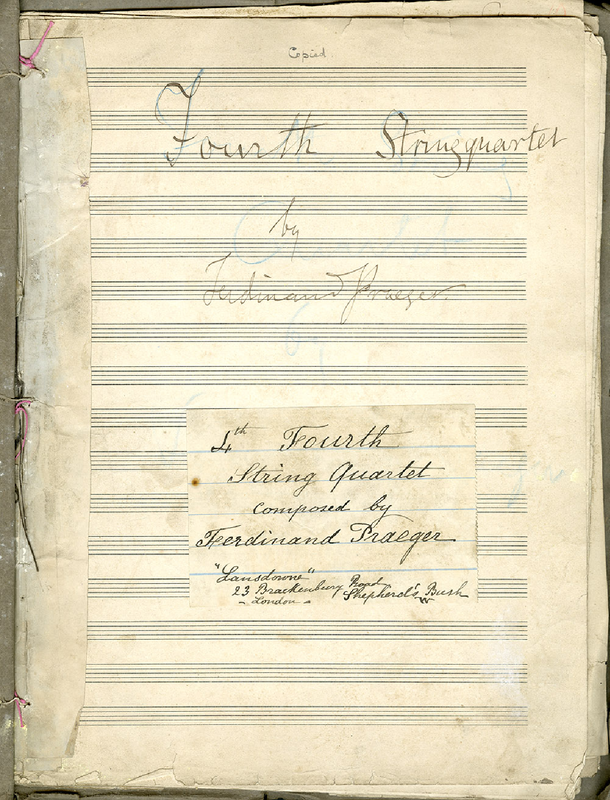 Copied
Fourth Stringquartet
by
Ferdinand Praeger.
4th Fourth
String Quartet
composed by
Ferdinand Praeger
"Lansdowne"
23 Brackenbury Road
Shepherd's Bush
- London - W